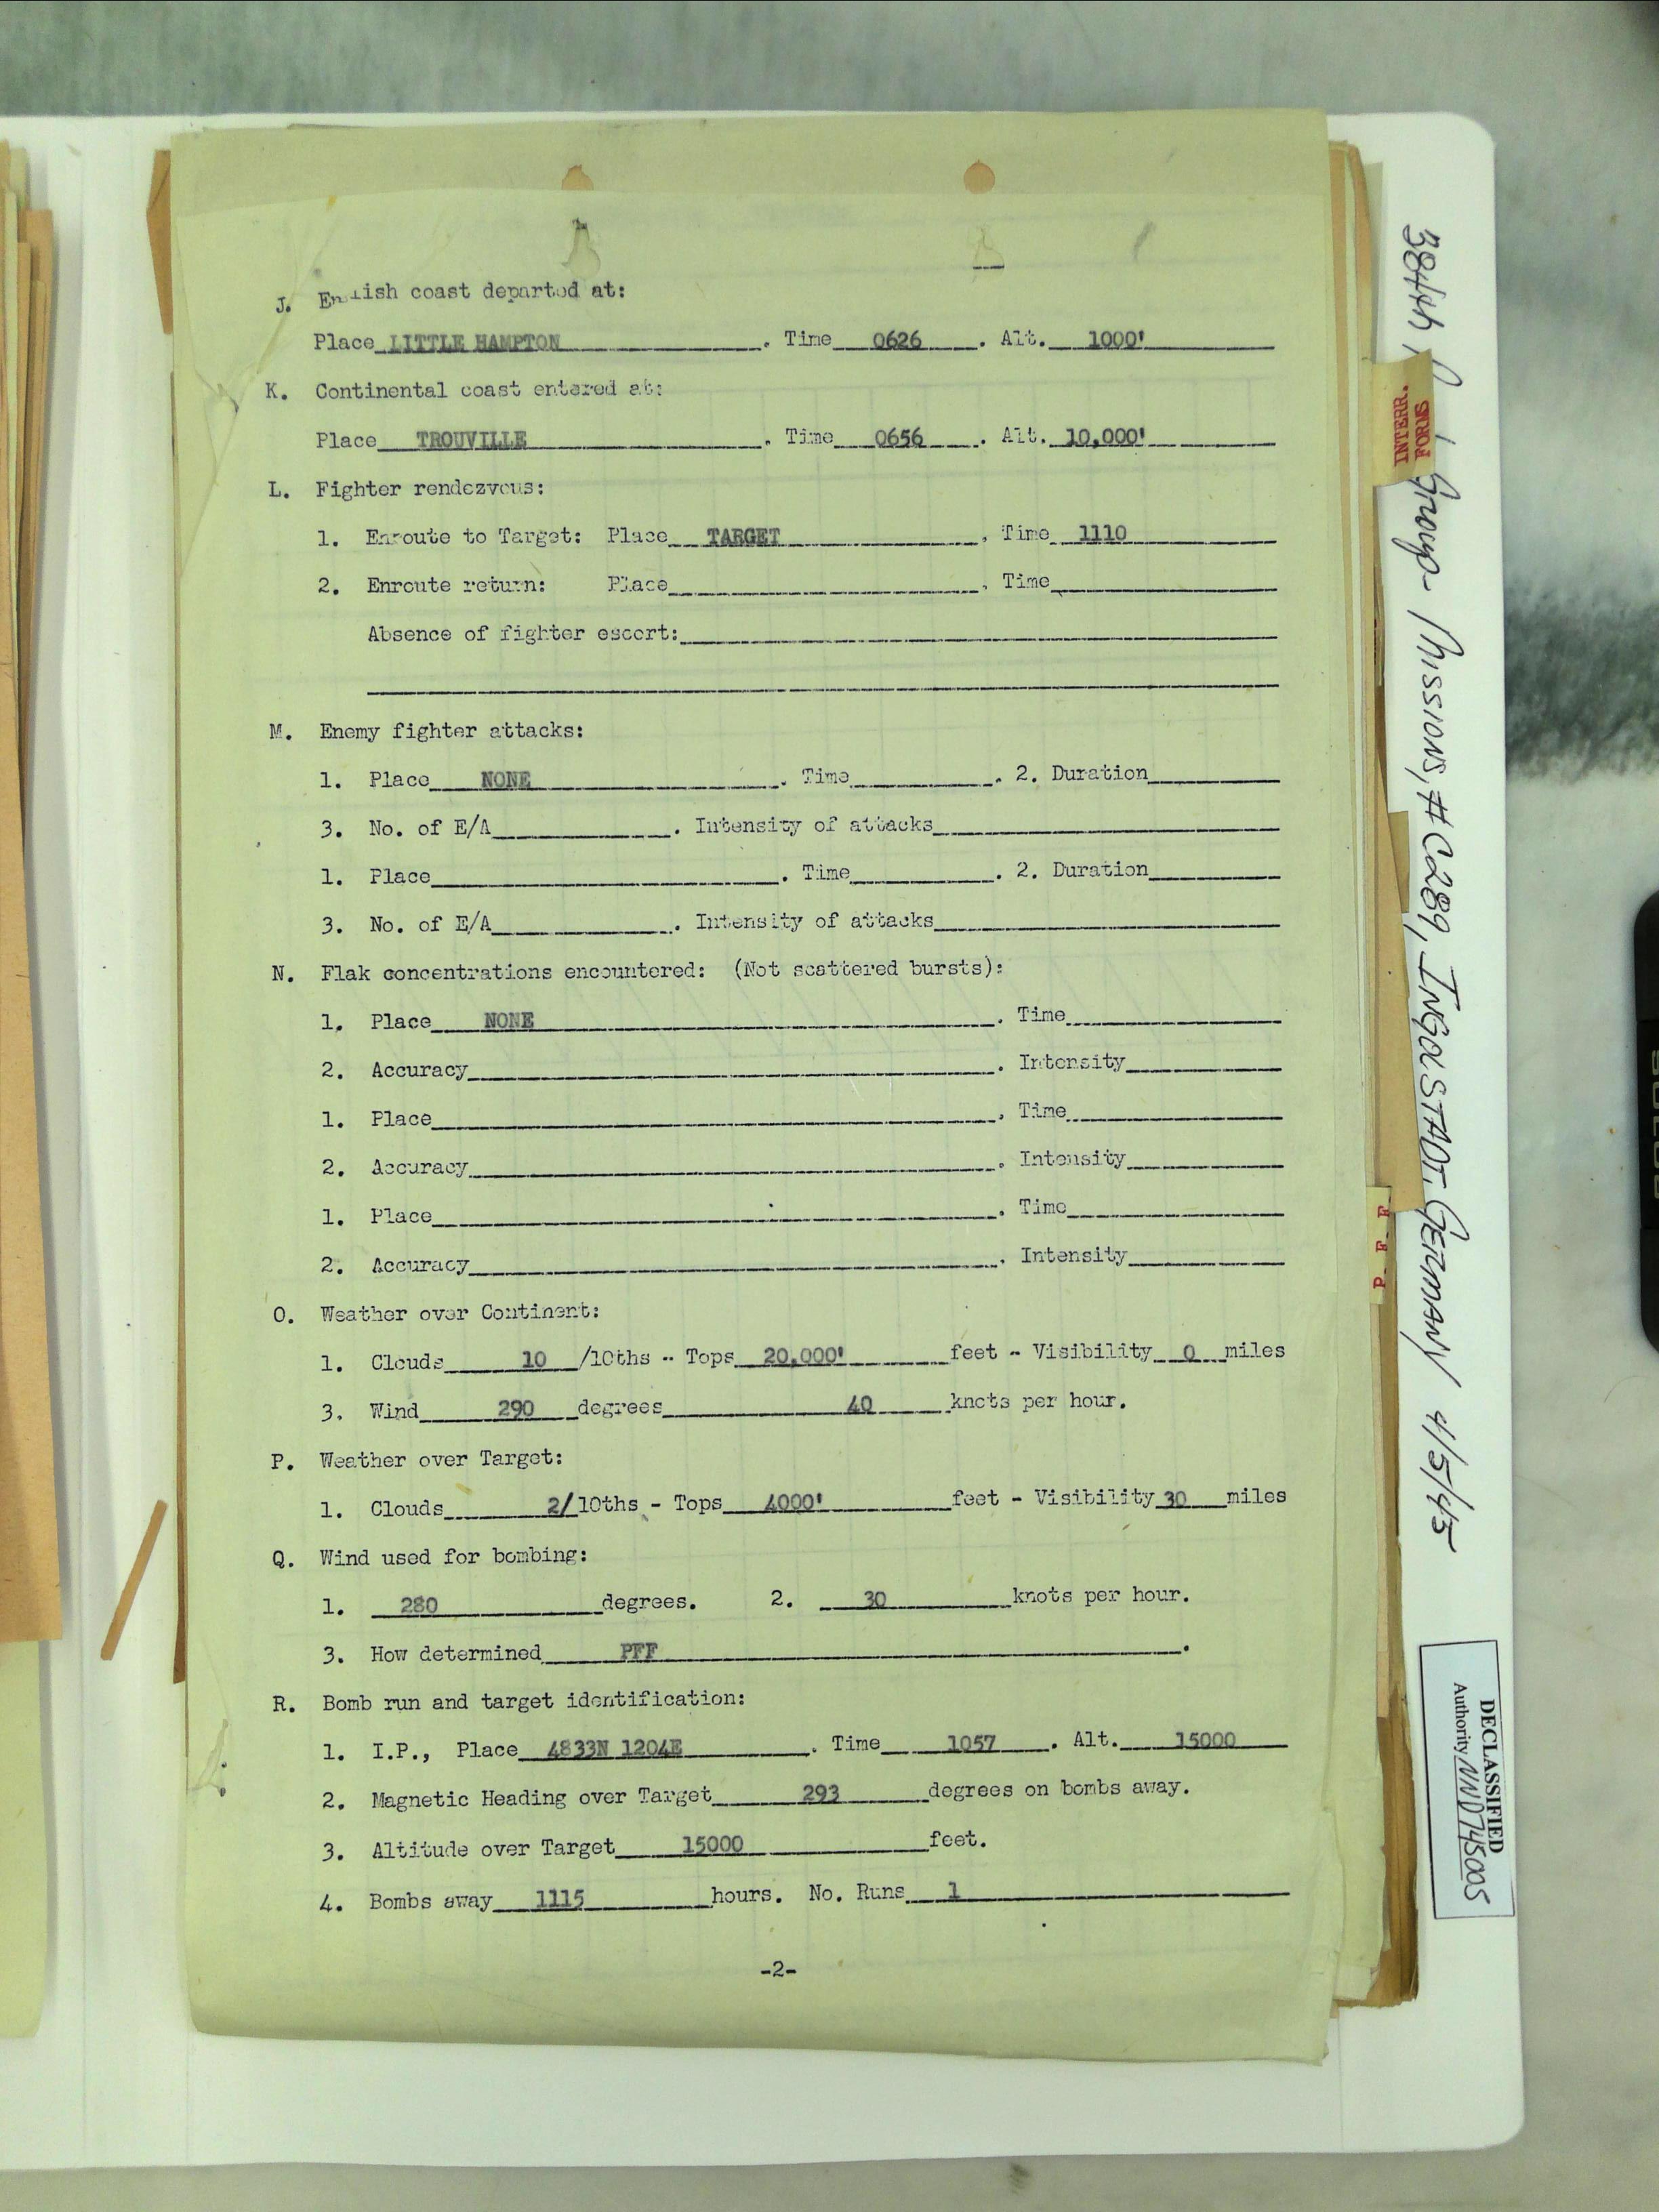 J. English coast departed at:
Place LITTLE HAMPTON . Time 0626 . Alt. 1000'
K. Continental coast entered at:
Place TROUVILLE . Time 0656 . Alt. 10,000'
L. Fighter rendezvous:
1. Enroute to Target: Place TARGET , Time 1110
2. Enroute return: Place , Time
Absence of fighter escort:
M. Enemy fighter attacks:
1. Place NONE . Time . 2. Duration
3. No. of E/A . Intensity of attacks
1. Place . Time . 2. Duration
3. No. of E/A . Intensity of attacks
N. Flak concentrations encountered: (Not scattered bursts):
1. Place NONE . Time
2. Accuracy . Intensity
1. Place . Time
2. Accuracy . Intensity
1. Place . Time
2. Accuracy . Intensity
O. Weather over Continent:
1. Clouds 10 /10ths - Tops 20,000' feet - Visibility 0 miles
3. Wind 290 degrees 40 knots per hour.
P. Weather over Target:
1. Clouds 2/10ths - Tops 4000' feet - Visibility 30 miles
Q. Wind used for bombing:
1. 280 degrees. 2. 30 knots per hour.
3. How determined PFF .
R. Bomb run and target identification:
1. I.P., Place 4833N 1204E . Time 1057 . Alt. 15000
2. Magnetic Heading over Target 293 degrees on bombs away.
3. Altitude over Target 15000 feet.
4. Bombs away 1115 hours. No. Runs 1
-2-
INTERR.
FORMS
P. F. F
384th Group- Missions, #C289, INGOLSTADT, GERMANY 4/5/45
DECLASSIFIED
Authority NND745005